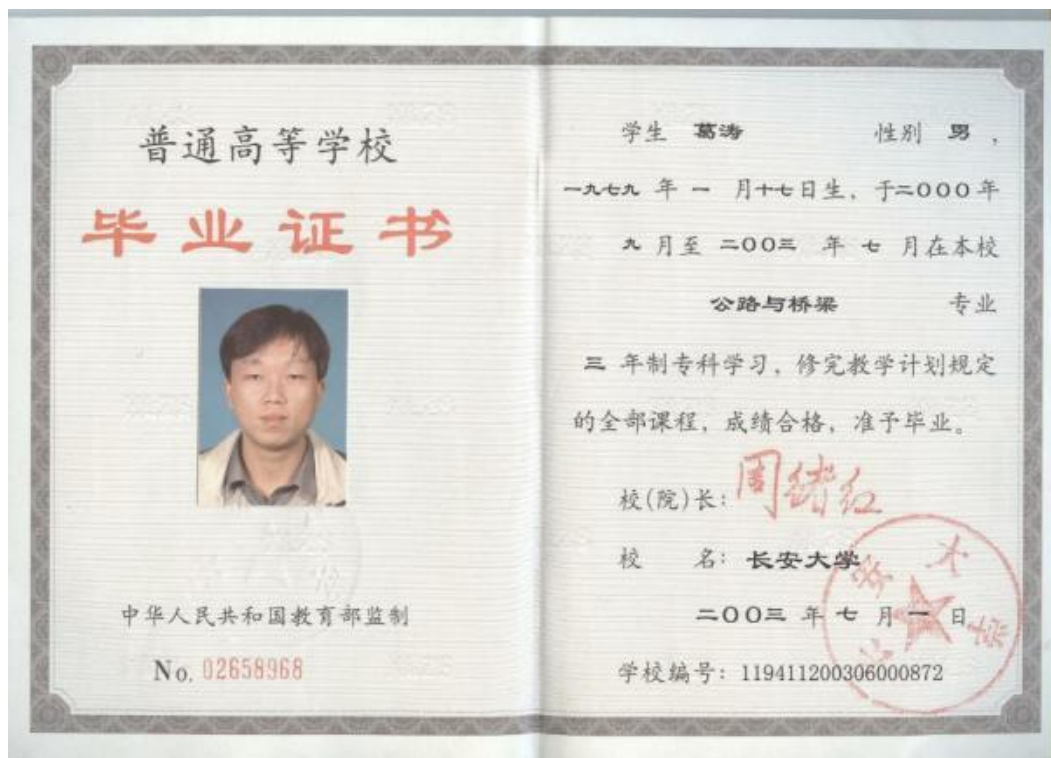 普通高等学校
毕业证书
中华人民共和国教育部监制
No. 02658968
学生 葛涛 性别 男，
一九七九 年 一 月十七日生，于二〇〇〇年
九 月至 二〇〇三 年 七 月在本校
公路与桥梁 专业
三 年制专科学习，修完教学计划规定
的全部课程，成绩合格，准予毕业。
校(院)长：周绪红
校 名：长安大学
二〇〇三 年 七 月 一 日
学校编号：119411200306000872